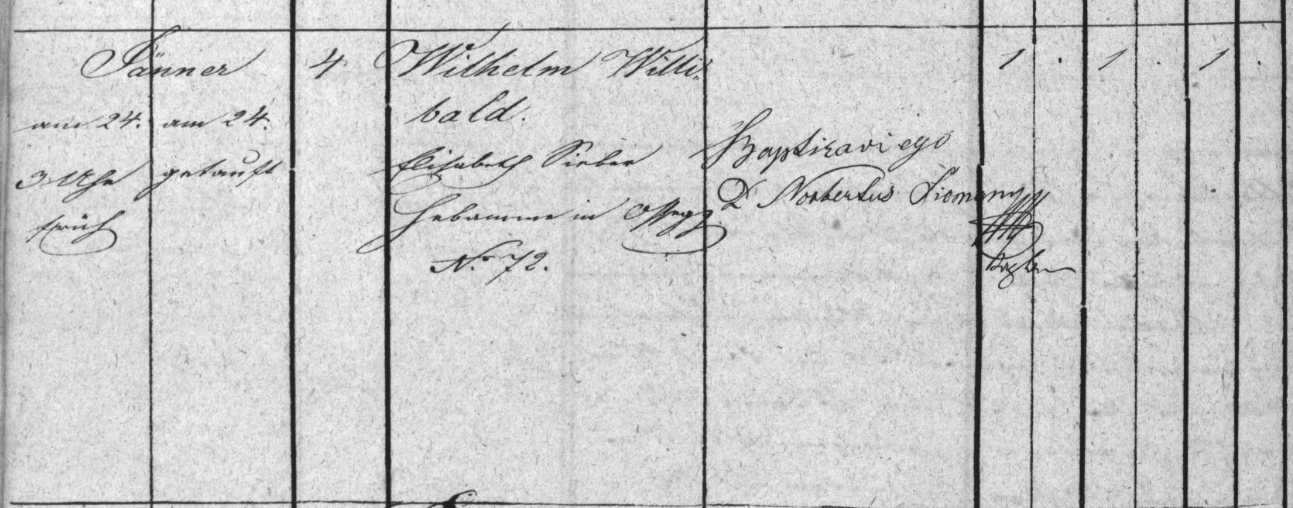 Jänner 4 Wilhelm Willi- 1 . 1 . 1 .
am 24. am 24. bald.
3 Uhr getauft Elisabeth Sieber Baptizavi ego
früh Hebamme in Ossegg P Norbertus
No 72.